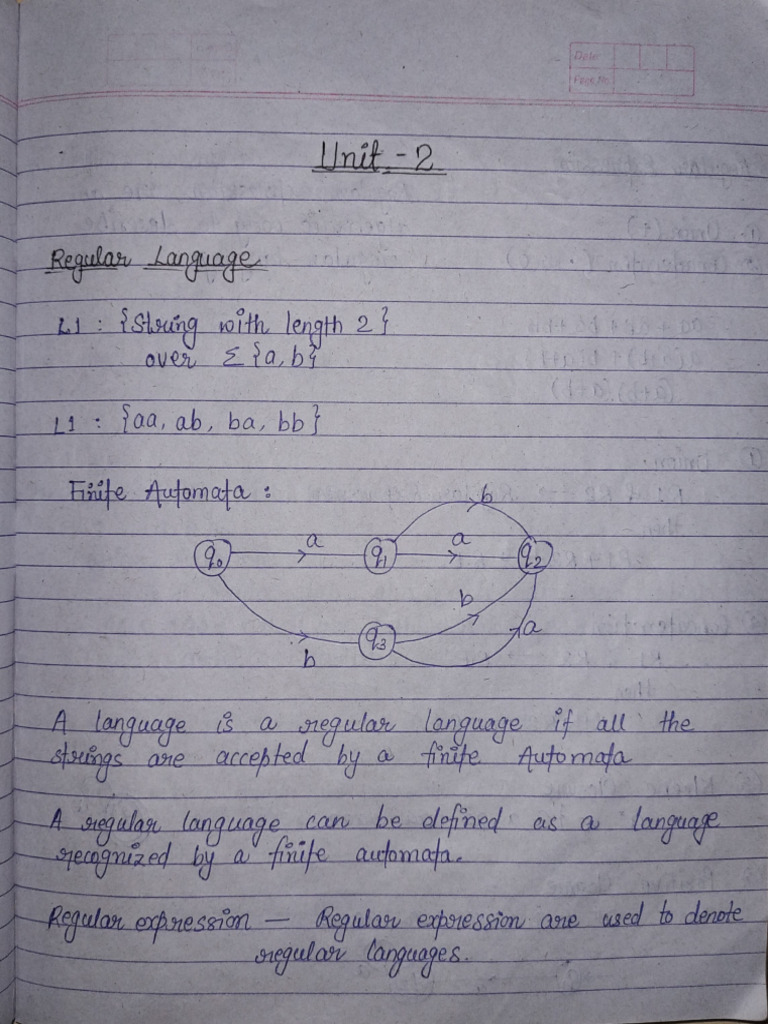 Date
Page No.
Unit - 2
Regular Language
L1 : {String with length 2}
over Σ {a, b}
L1 : {aa, ab, ba, bb}
Finite Automata :
b
a a
q0 q1 q2
b
q3 a
b
A language is a regular language if all the
strings are accepted by a finite Automata
A regular language can be defined as a language
recognized by a finite automata.
Regular expression — Regular expression are used to denote
regular languages.